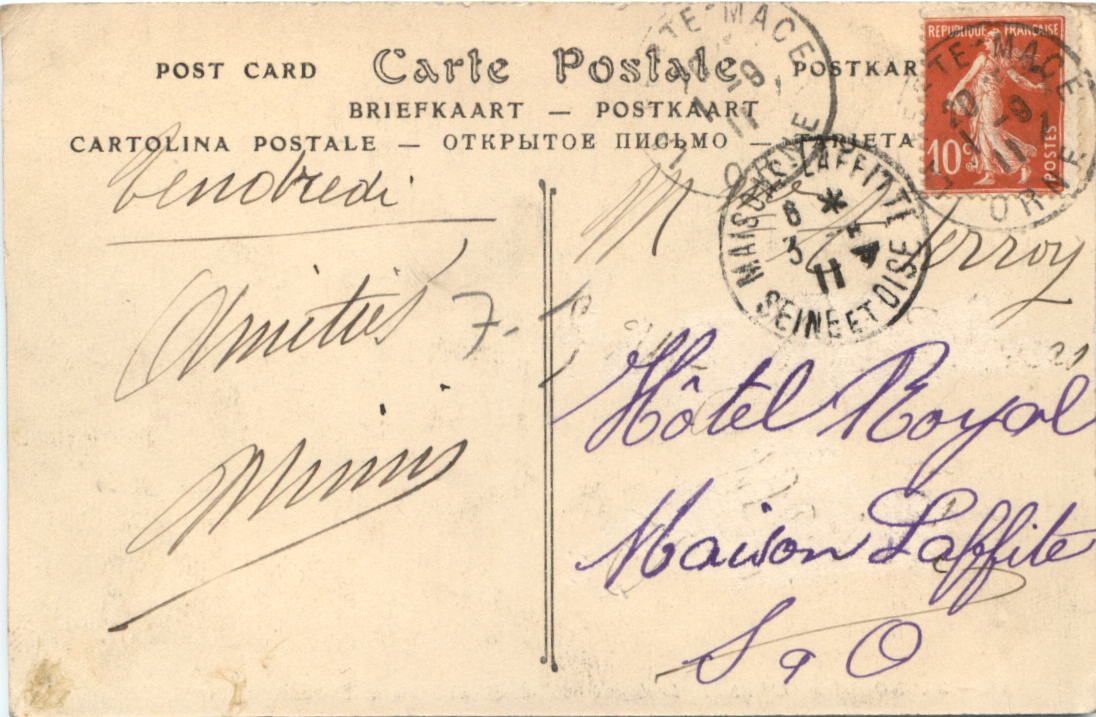 POST CARD Carte Postale POSTKAR
BRIEFKAART — POSTKAART
CARTOLINA POSTALE — ОТКРЫТОЕ ПИСЬМО — TARJETA
Vendredi
Amitiés
7-
M
erroy
Hôtel Royal
Maison Laffite
S & O
TE-MACE
ORNE
MAISONS-LAFFITTE
6 *
3
11
SEINE ET OISE
REPUBLIQUE FRANÇAISE
10c
POSTES
TE-MACE
20
11
ORNE